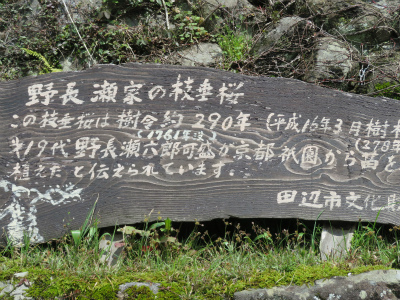 野長瀬家の枝垂桜
この枝垂桜は樹令約290年(平成16年3月樹木
(1781年頃)
(278年
第19代野長瀬六郎可盛が京都祇園から苗を
植えたと伝えられています。
田辺市文化